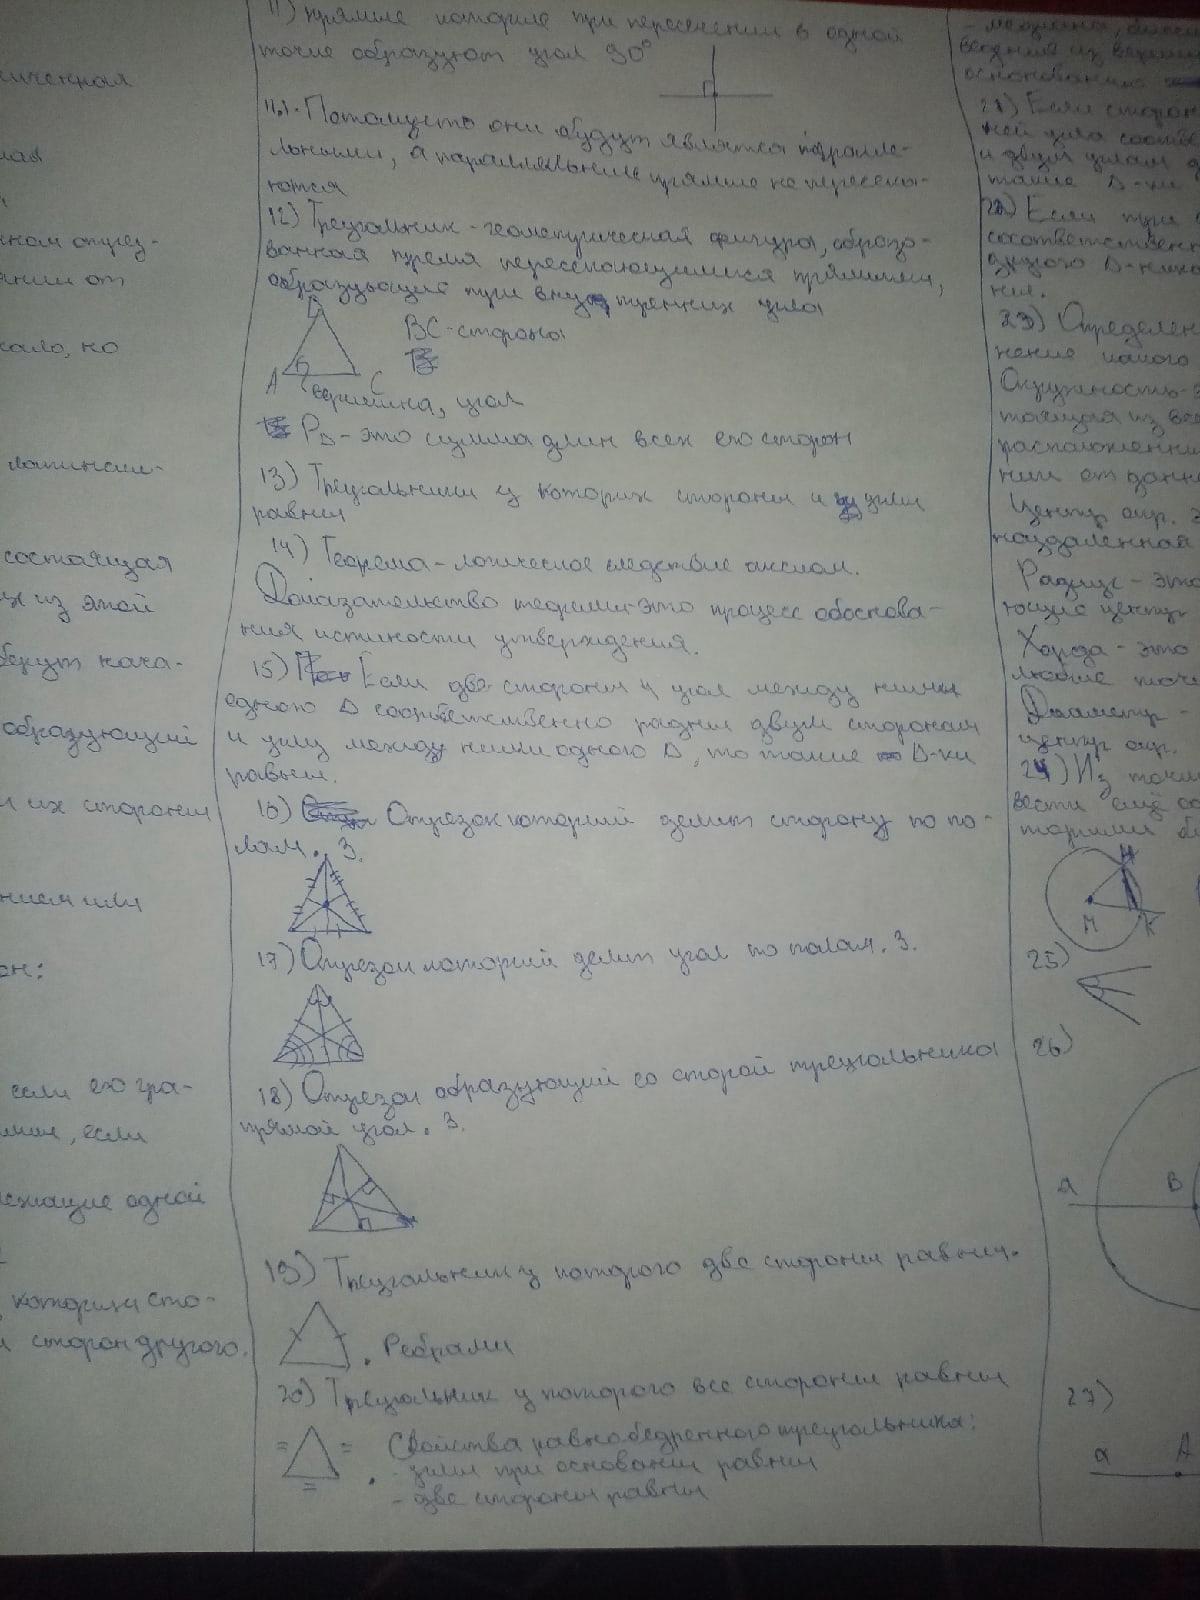 иченная
лав
ком отрез-
янии от
сало, но
латински-
состоящая
ух из этой
берут нача-
образующий
и их стороны
нием или
он:
если его гра-
мин, если
лежащие одной
которых сто-
и сторон другого.
11) прямые которые при пересечении в одной
точке образуют угол 90°
11.1. Потомусто они будут является паралле-
льными, а параллельные прямые не пересека-
ются
12) Треугольник - геометрическая фигура, образо-
ванная тремя пересекающимися прямыми,
образующие три внутренних угла
B
BC - сторона
A
C
вершина, угол
P∆ - это сумма длин всех его сторон
13) Треугольники у которых стороны и углы
равны
14) Теорема - логическое следствие аксиом.
Доказательство теоремы - это процесс обоснова-
ния истиности утверждения.
15) Если две стороны и угол между ними
одного ∆ соответственно равны двум сторонам
и углу между ними одного ∆, то такие ∆-ки
равны.
16) Отрезок который делит сторону по по-
лам. 3.
17) Отрезок который делит угол по полам. 3.
18) Отрезок образующий со сторой треугольника
прямой угол. 3.
19) Треугольник у которого две стороны равны.
. Ребрами
20) Треугольник у которого все стороны равны
= = =
. Свойства равнобедренного треугольника:
- углы при основании равны
- две стороны равны
- медиана, бисс
ведение из верши
основанию
21) Если сторон
ней угла соотве
и двум углам д
такие ∆-ки
22) Если три
соответственн
другого ∆-ника
ны.
23) Определен
нение какого
Окружность -
тоящая из все
расположенны
нии от данн
Центр окр. э
наздаленной
Радиус - это
ющие центр
Хорда - это
любые точк
Диаметр -
центр окр.
24) Из точки
вести ещё
торыми
H
M
K
25)
26)
a
B
27)
a
A